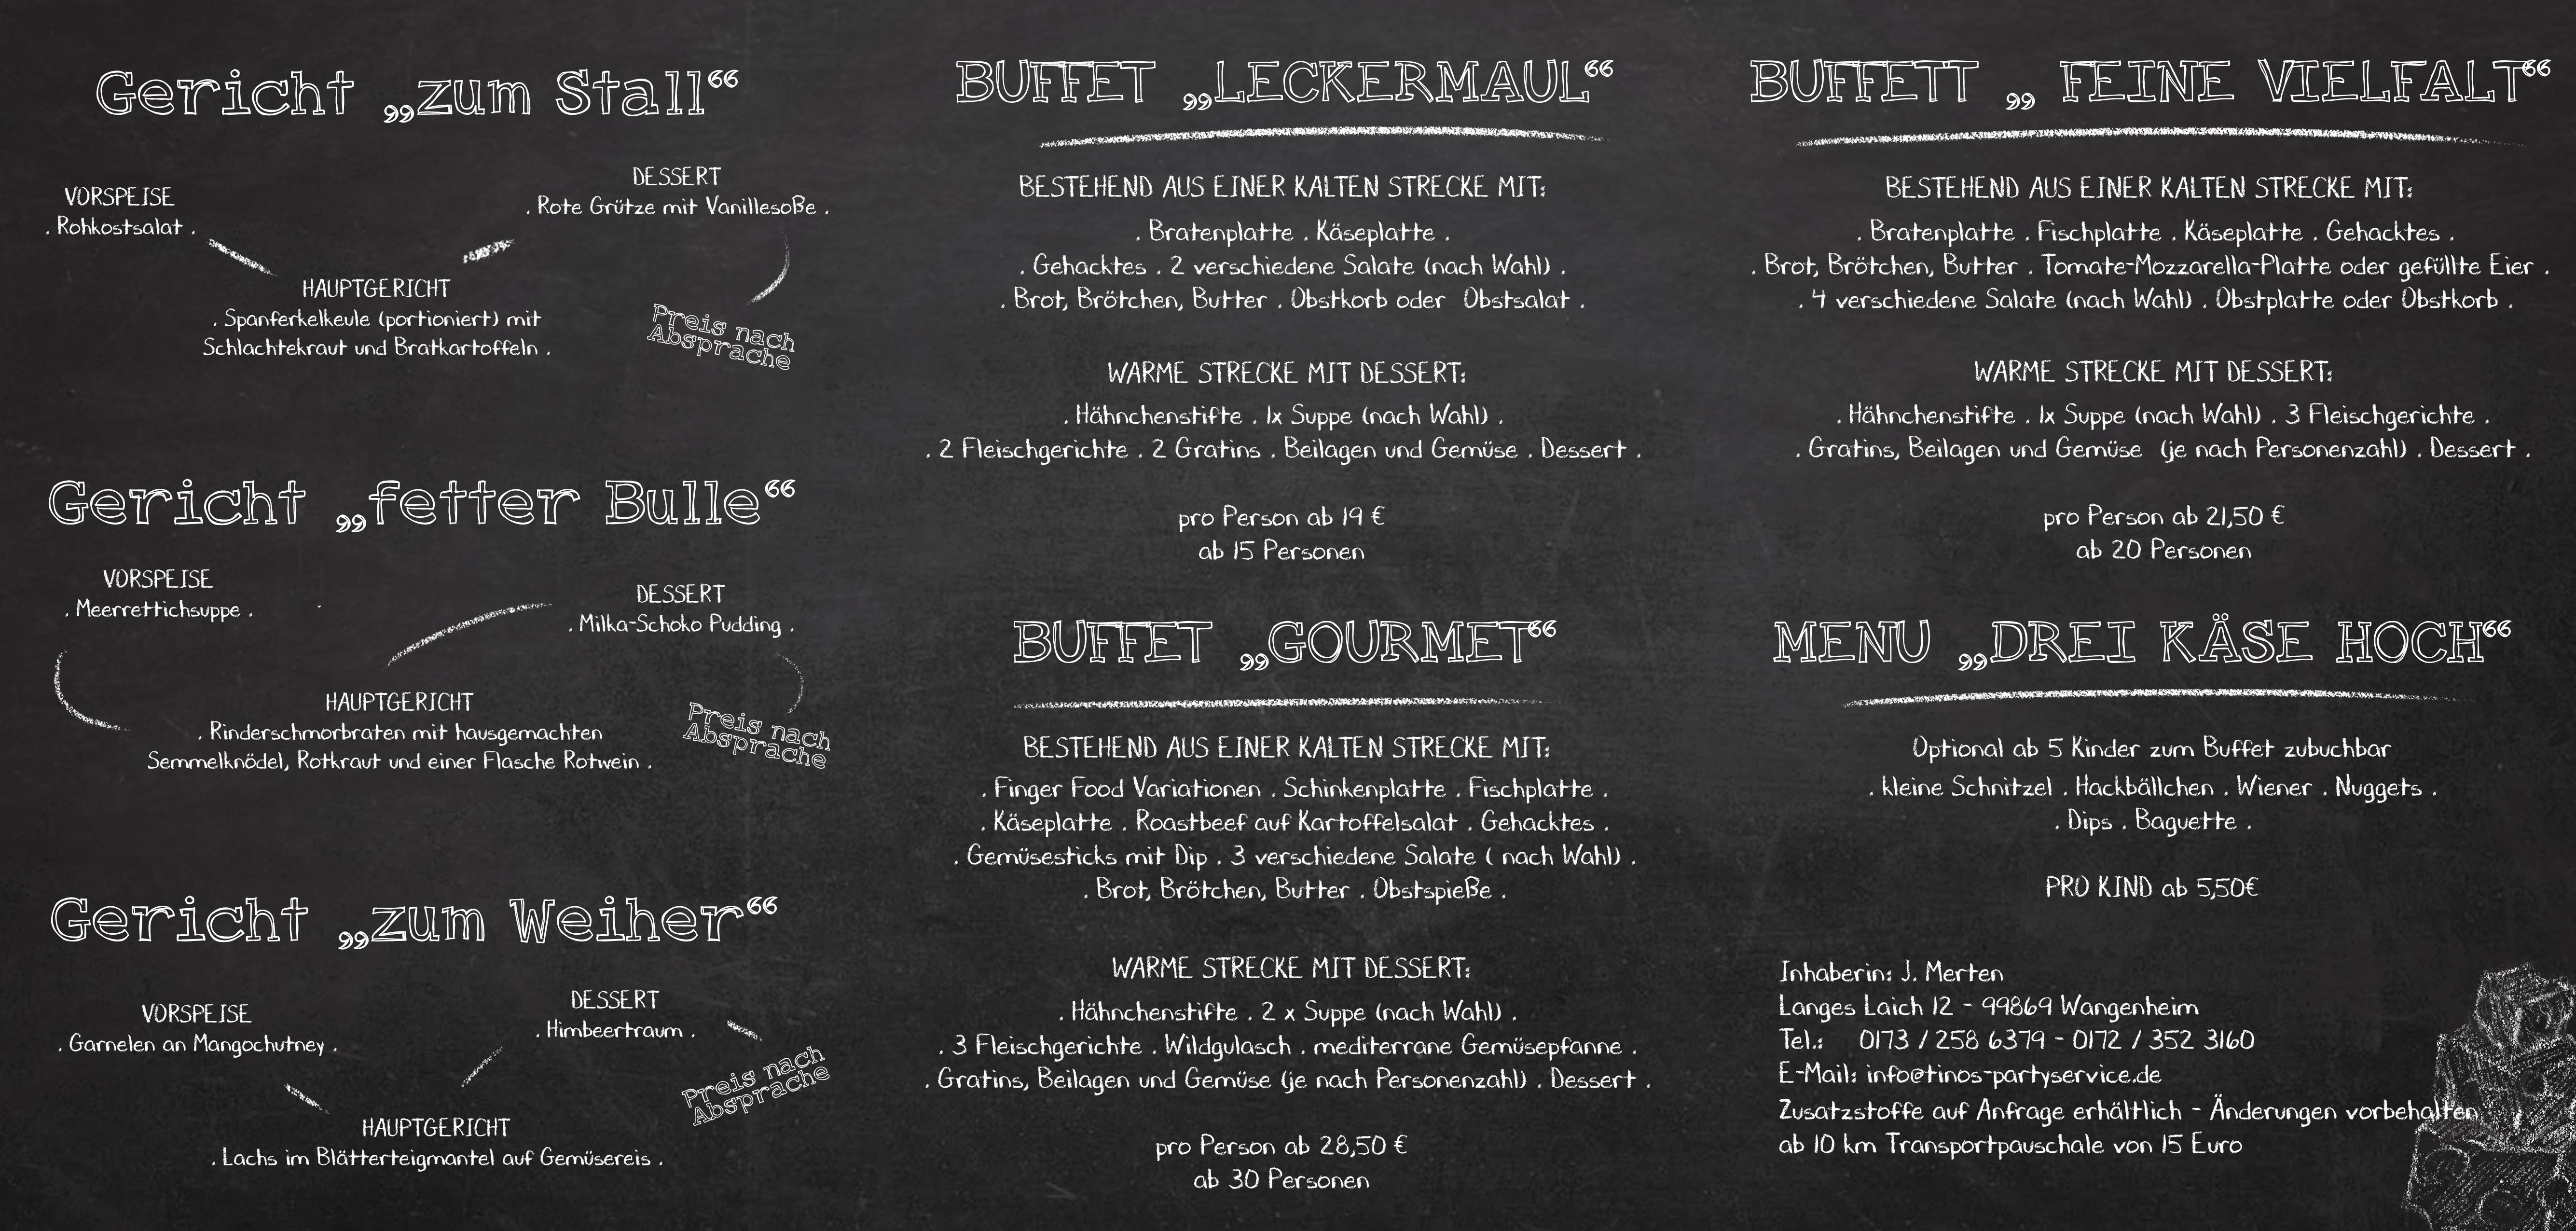 Gericht „zum Stall“
VORSPEISE
. Rohkostsalat .
DESSERT
. Rote Grütze mit Vanillesoße .
HAUPTGERICHT
. Spanferkelkeule (portioniert) mit
Schlachtekraut und Bratkartoffeln .
Preis nach
Absprache
Gericht „fetter Bulle“
VORSPEISE
. Meerrettichsuppe .
DESSERT
. Milka-Schoko Pudding .
HAUPTGERICHT
. Rinderschmorbraten mit hausgemachten
Semmelknödel, Rotkraut und einer Flasche Rotwein .
Preis nach
Absprache
Gericht „zum Weiher“
VORSPEISE
. Garnelen an Mangochutney .
DESSERT
. Himbeertraum .
HAUPTGERICHT
. Lachs im Blätterteigmantel auf Gemüsereis .
Preis nach
Absprache
BUFFET „LECKERMAUL“
BESTEHEND AUS EINER KALTEN STRECKE MIT:
. Bratenplatte . Käseplatte .
. Gehacktes . 2 verschiedene Salate (nach Wahl) .
. Brot, Brötchen, Butter . Obstkorb oder Obstsalat .
WARME STRECKE MIT DESSERT:
. Hähnchenstifte . 1x Suppe (nach Wahl) .
. 2 Fleischgerichte . 2 Gratins . Beilagen und Gemüse . Dessert .
pro Person ab 19 €
ab 15 Personen
BUFFET „GOURMET“
BESTEHEND AUS EINER KALTEN STRECKE MIT:
. Finger Food Variationen . Schinkenplatte . Fischplatte .
. Käseplatte . Roastbeef auf Kartoffelsalat . Gehacktes .
. Gemüsesticks mit Dip . 3 verschiedene Salate ( nach Wahl) .
. Brot, Brötchen, Butter . Obstspieße .
WARME STRECKE MIT DESSERT:
. Hähnchenstifte . 2 x Suppe (nach Wahl) .
. 3 Fleischgerichte . Wildgulasch . mediterrane Gemüsepfanne .
. Gratins, Beilagen und Gemüse (je nach Personenzahl) . Dessert .
pro Person ab 28,50 €
ab 30 Personen
BUFFETT „ FEINE VIELFALT“
BESTEHEND AUS EINER KALTEN STRECKE MIT:
. Bratenplatte . Fischplatte . Käseplatte . Gehacktes .
. Brot, Brötchen, Butter . Tomate-Mozzarella-Platte oder gefüllte Eier .
. 4 verschiedene Salate (nach Wahl) . Obstplatte oder Obstkorb .
WARME STRECKE MIT DESSERT:
. Hähnchenstifte . 1x Suppe (nach Wahl) . 3 Fleischgerichte .
. Gratins, Beilagen und Gemüse (je nach Personenzahl) . Dessert .
pro Person ab 21,50 €
ab 20 Personen
MENU „DREI KÄSE HOCH“
Optional ab 5 Kinder zum Buffet zubuchbar
. kleine Schnitzel . Hackbällchen . Wiener . Nuggets .
. Dips . Baguette .
PRO KIND ab 5,50€
Inhaberin: J. Merten
Langes Laich 12 - 99869 Wangenheim
Tel.: 0173 / 258 6379 - 0172 / 352 3160
E-Mail: info@tinos-partyservice.de
Zusatzstoffe auf Anfrage erhältlich - Änderungen vorbehalten
ab 10 km Transportpauschale von 15 Euro